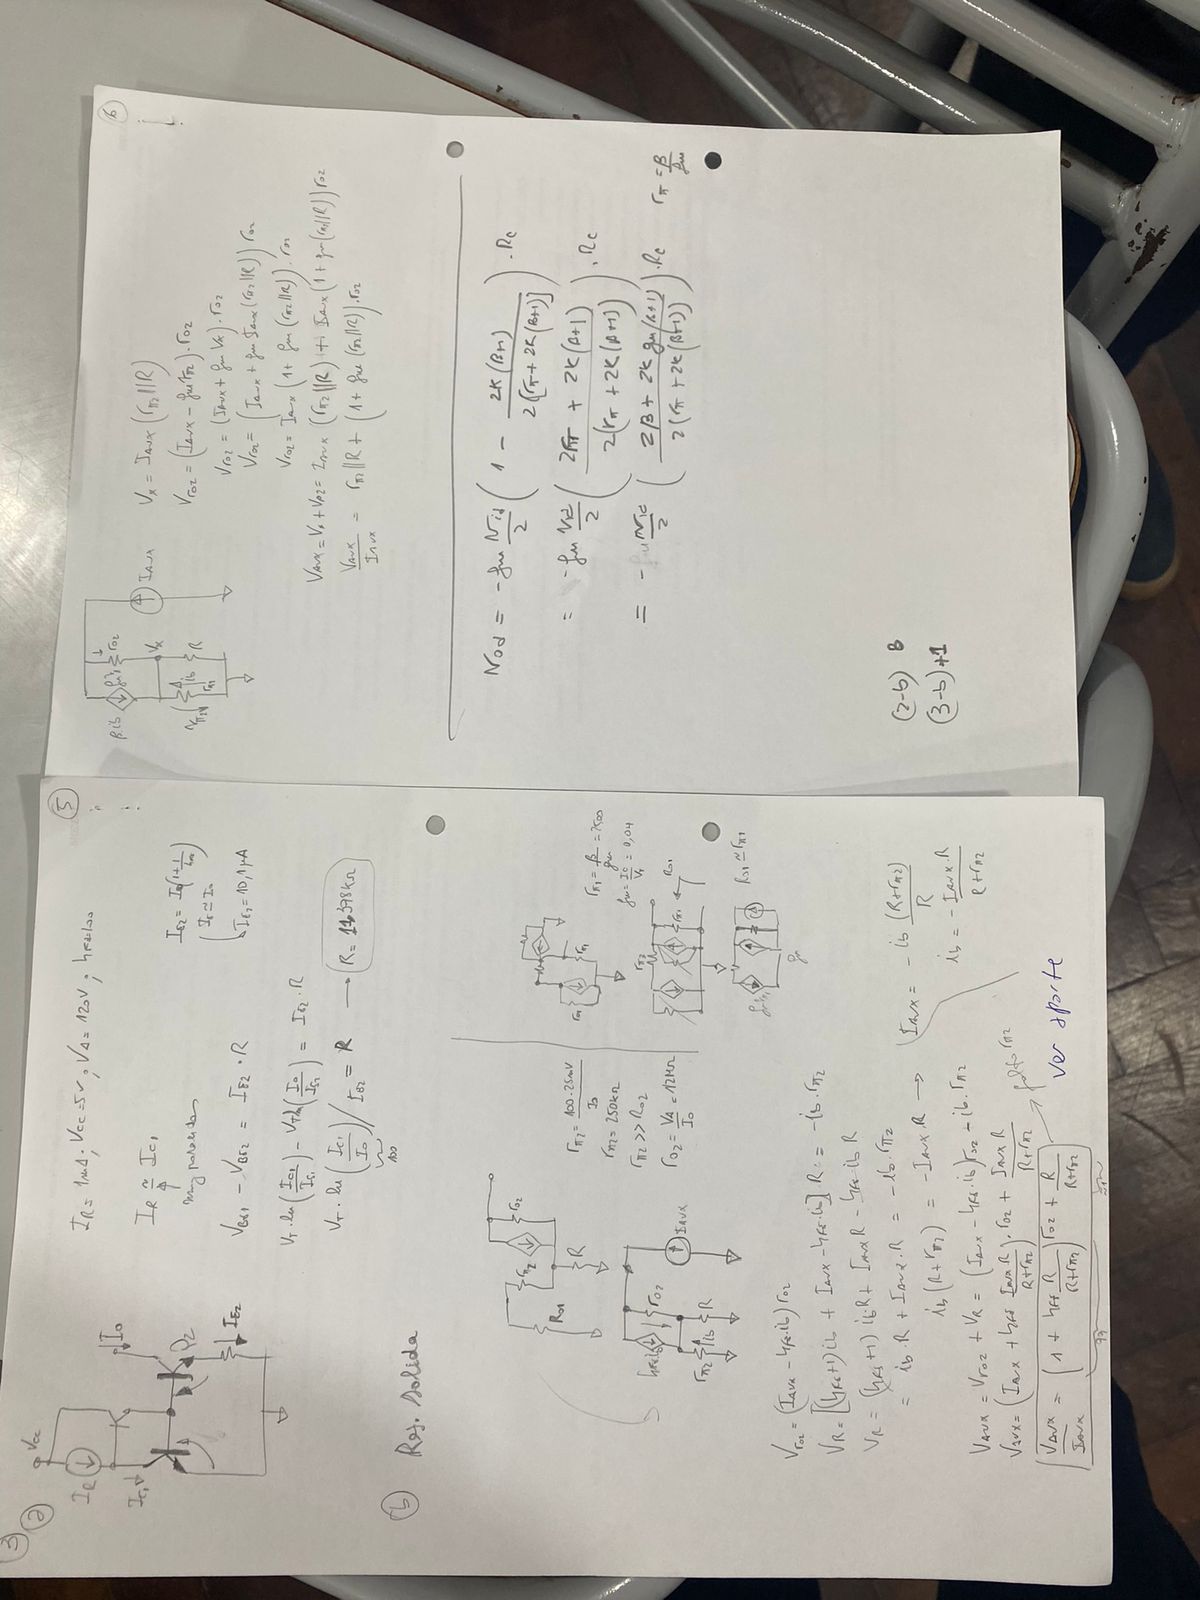 3
a
I_R = 1mA. Vcc=5V, V_A = 120V, h_FE=100
Vcc
I_R
I_C1
I_0
Q2
I_E2
I_R ≃ I_C1
muy parecidas
I_E2 = I_0(1+1/h_FE)
I_E ≃ I_0
I_E2 = 10,1 µA
V_BE1 - V_BE2 = I_E2 · R
V_T · ln(I_C1/I_S1) - V_T ln(I_0/I_S2) = I_E2 · R
V_T · ln(I_C1/I_0)/I_E2 = R → R = 11,398 kΩ
100
5
b
Res. Salida
R_01
r_π2
r_02
R
r_π2 = 100·25mV/I_0
r_π2 = 250kΩ
r_π2 >> R_02
r_02 = V_A/I_0 = 12MΩ
r_π1 = β/gm = 2500
gm = I_C/V_T = 0,04
R_01
R_01 ≃ r_π1
h_FE·ib
r_02
I_AUX
r_π2
ib
R
V_r02 = (I_AUX - h_FE·ib) r_02
V_R = [(h_FE+1)ib + I_AUX - h_FE·ib] R = -ib·r_π2
V_R = (h_FE+1) ib·R + I_AUX R - h_FE·ib·R
= ib·R + I_AUX·R = -ib·r_π2
ib(R+r_π2) = -I_AUX·R →
I_AUX = -ib (R+r_π2)/R
ib = - I_AUX·R/(R+r_π2)
V_AUX = V_r02 + V_R = (I_AUX - h_FE·ib) r_02 - ib·r_π2
V_AUX = (I_AUX + h_FE I_AUX R/(R+r_π2))·r_02 + I_AUX R/(R+r_π2)
falto r_π2
V_AUX/I_AUX = (1 + h_FE R/(R+r_π2)) r_02 + R/(R+r_π2)
ver aparte
6
β·ib
r_02
V_X
I_AUX
r_π2
ib
R
V_X = I_AUX (r_π2||R)
V_r02 = (I_AUX - gm V_π2)·r_02
V_r02 = (I_AUX + gm V_X)·r_02
V_r02 = (I_AUX + gm I_AUX (r_π2||R)) r_02
V_r02 = I_AUX (1 + gm (r_π2||R))·r_02
V_AUX = V_X + V_r02 = I_AUX (r_π2||R) + I_AUX (1 + gm (r_π2||R)) r_02
V_AUX/I_AUX = r_π2||R + (1 + gm (r_π2||R))·r_02
Vod = -gm Vid/2 (1 - 2K(β+1)/2[rπ + 2K(β+1)])·Rc
= -gm Vid/2 (2rπ + 2K(β+1)/2(rπ + 2K(β+1)))·Rc
= -gm Vid/2 (2β + 2K gm(β+1)/2(rπ + 2K(β+1)))·Rc
rπ = β/gm
(2-b) B
(3-b) +1